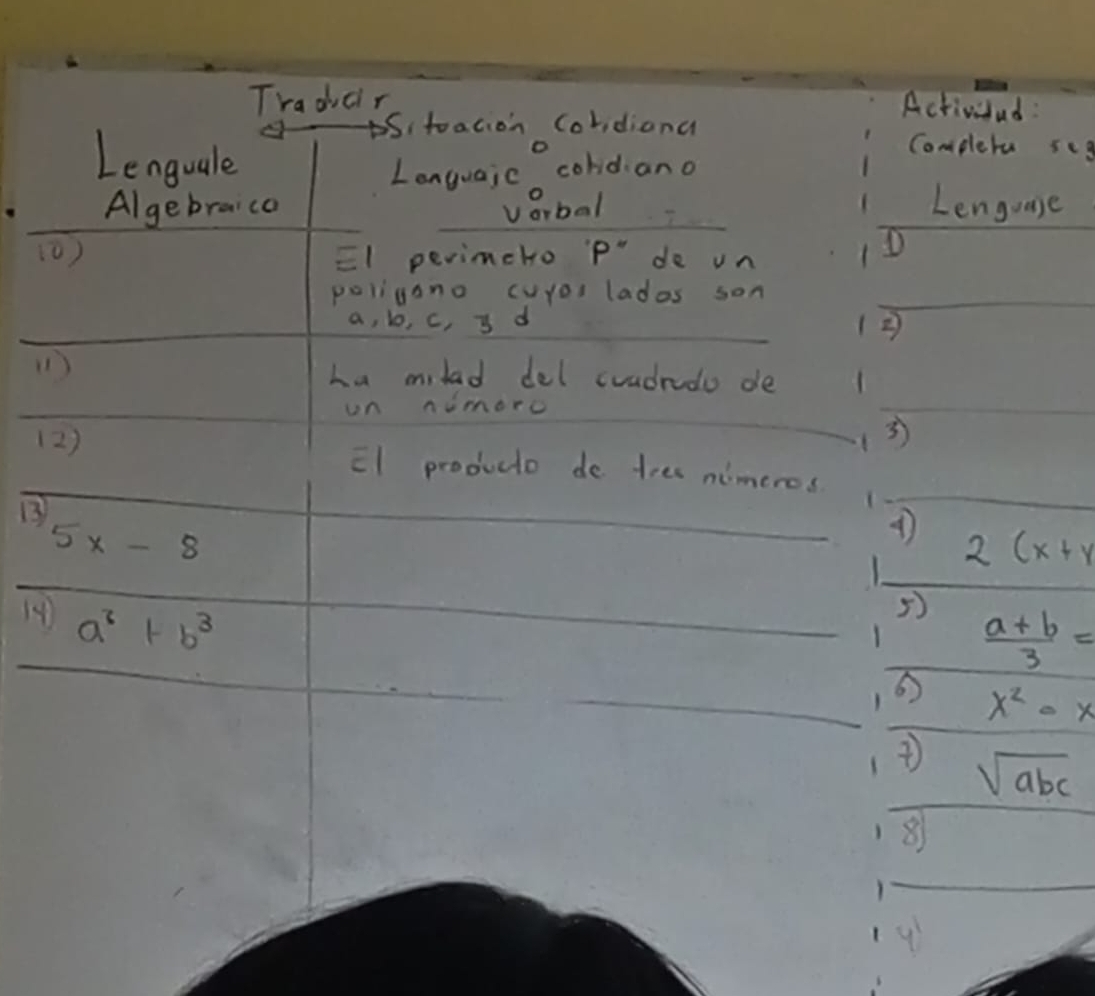 Traducir
Situación Cotidiana
o
Lenguaje cotidiano
o
Verbal
Lenguale
Algebraico
10)
El perimetro "P" de un
poligono cuyos lados son
a, b, c, y d
11)
La mitad del cuadrado de
un número
12)
El producto de tres números.
13)
5x - 8
14)
+ b³
Actividad:
Completa seg
Lenguaje
1)
2)
3)
4)
2 (x + y
5)
a + b
3
=
6)
x²
x
7)
√abc
8)